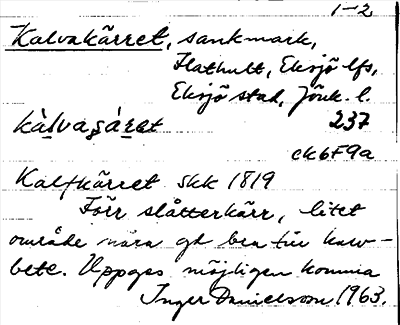 1-2
Kalvakärret, sankmark,
Flathult, Eksjö lfs,
Eksjö stad, Jönk. l.
237
kàlvaçàret
ck6F9a
Kalfkärret skk 1819
Förr slåtterkärr, litet
område nära gd ben till kalv-
bete. Uppges möjligen komma
Inger Danielsson 1963.